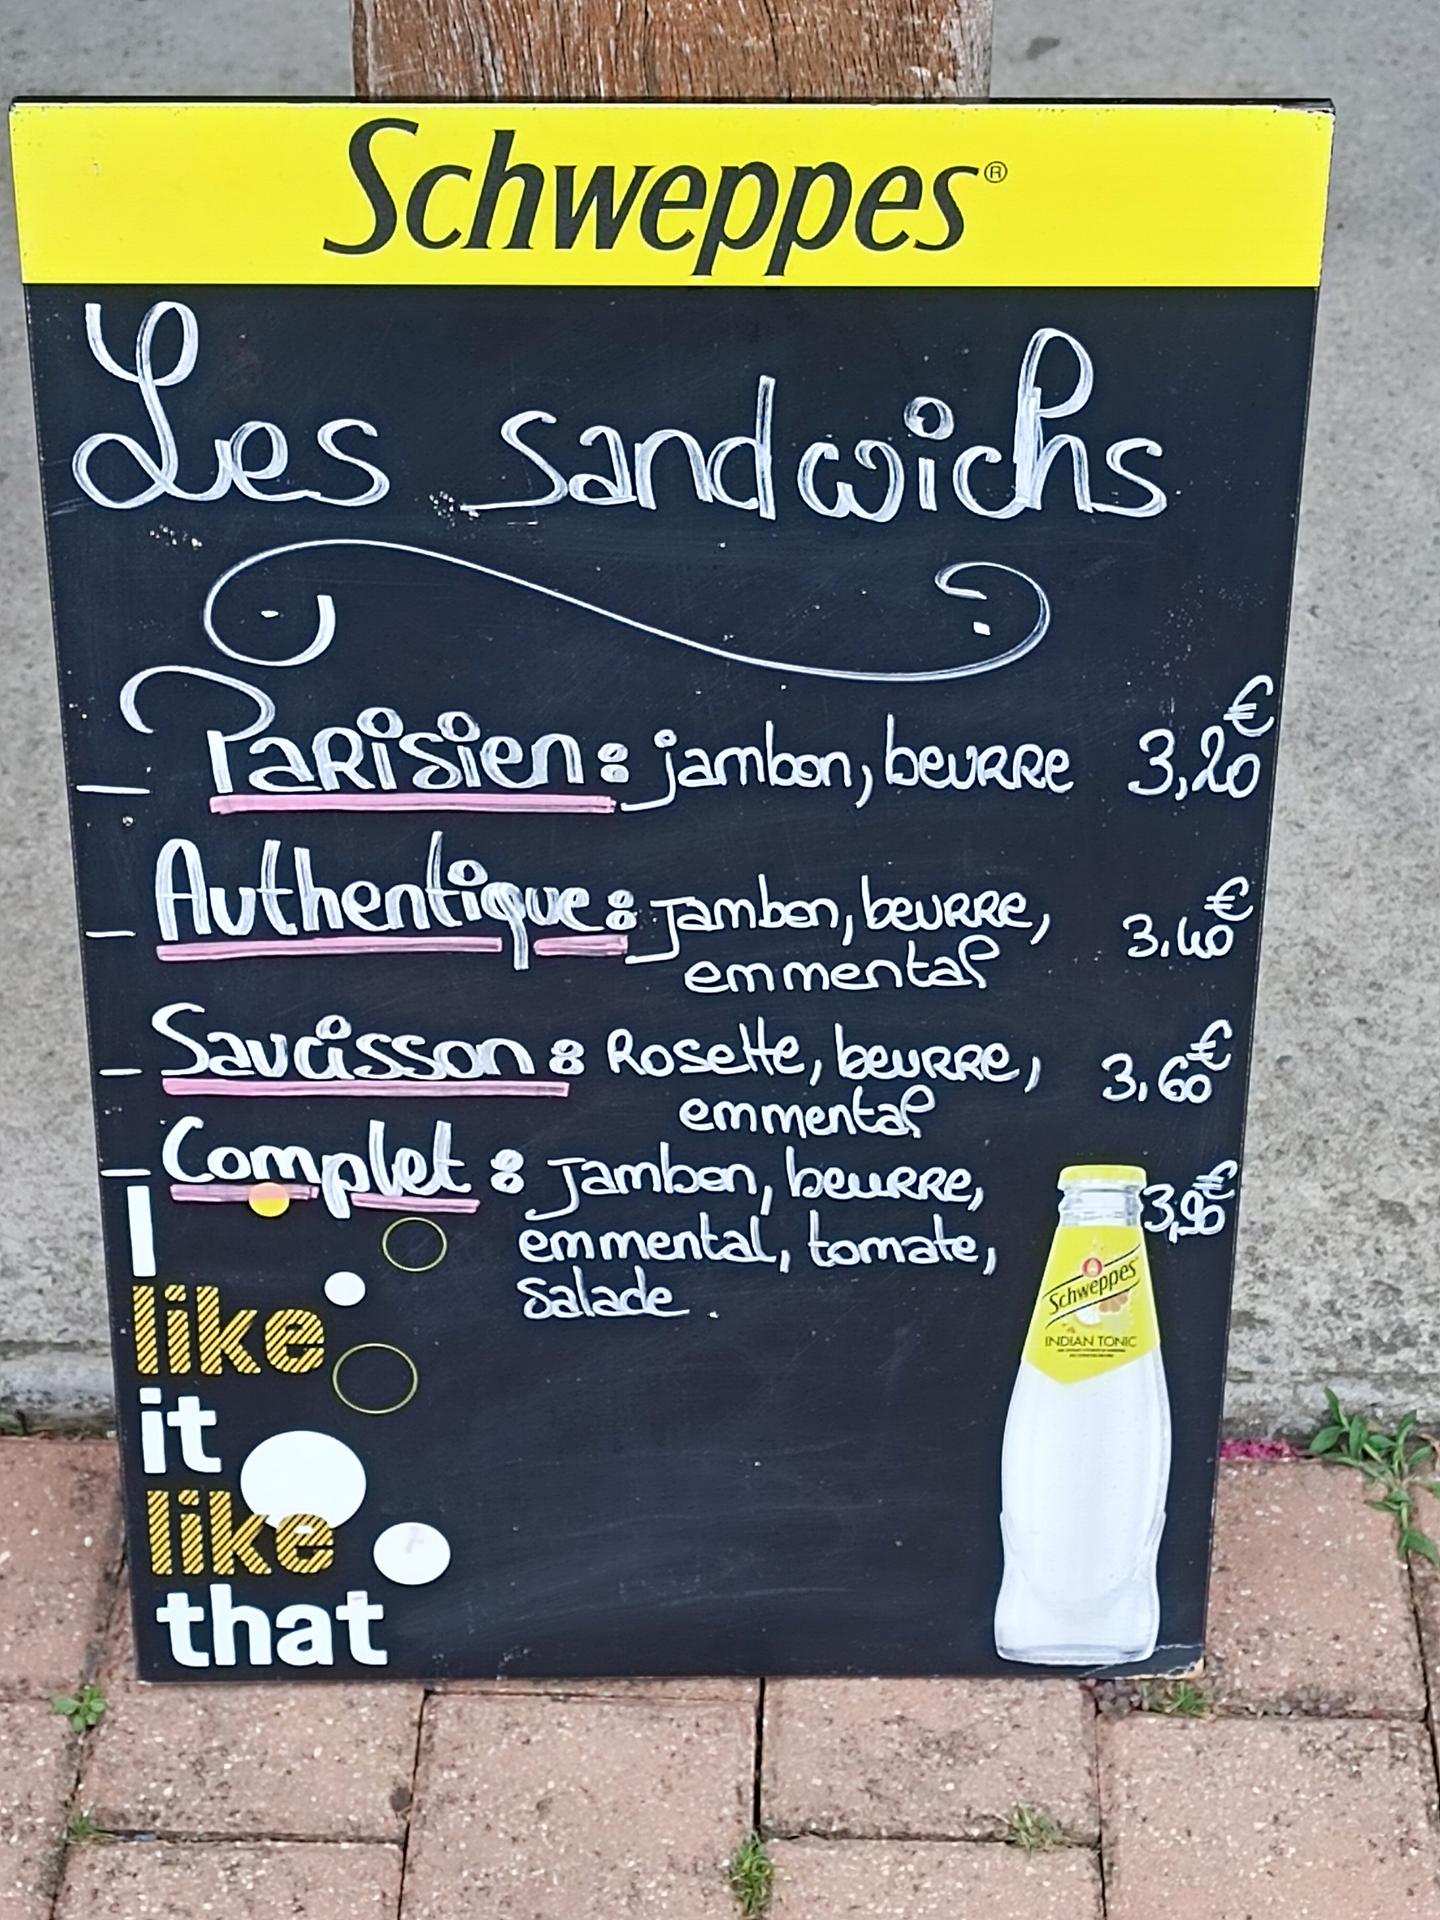 Schweppes®
Les sandwichs
_ Parisien : jambon, beurre 3,20€
_ Authentique : Jambon, beurre, 3.40€
emmental
_ Saucisson : Rosette, beurre, 3,60€
emmental
_ Complet : Jambon, beurre, 3,90€
emmental, tomate,
salade.
I
like
it
like
that
Schweppes
INDIAN TONIC